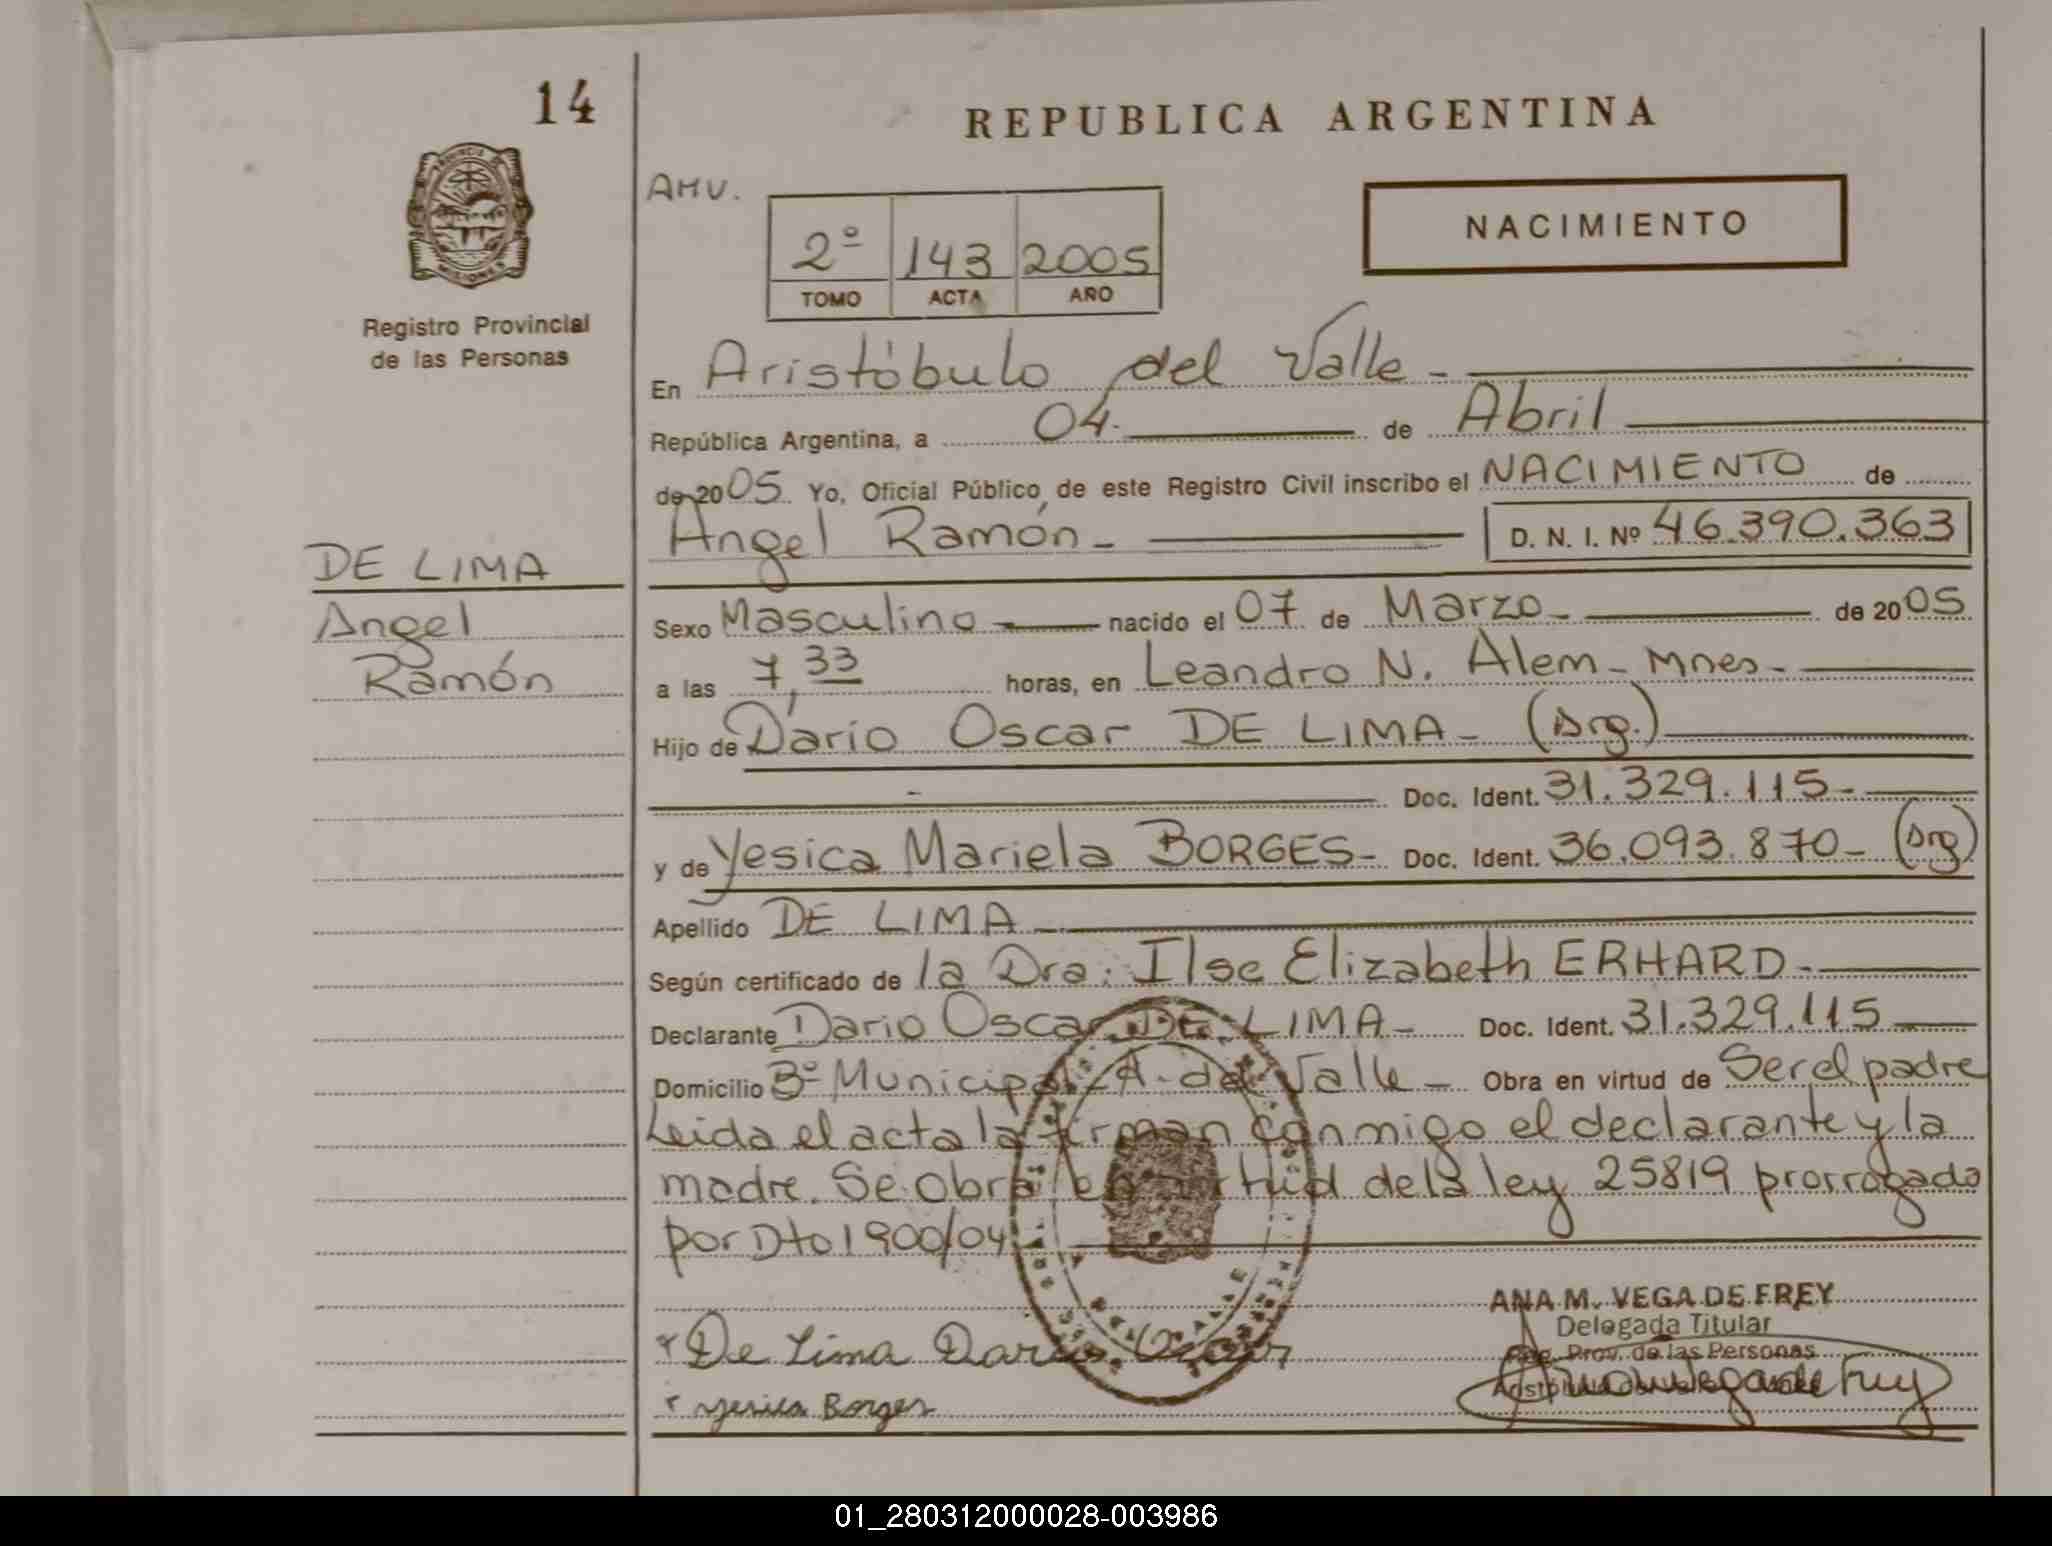 14
REPUBLICA ARGENTINA
PROVINCIA DE
MISIONES
Registro Provincial
de las Personas
AMV.
2º 143 2005
TOMO ACTA AÑO
NACIMIENTO
En Aristóbulo del Valle -
República Argentina, a 04. de Abril
de 2005 Yo, Oficial Público, de este Registro Civil inscribo el NACIMIENTO de
Angel Ramón - D. N. I. Nº 46.390.363
DE LIMA
Angel
Ramón
Sexo Masculino nacido el 07 de Marzo - de 2005
a las 7,33 horas, en Leandro N. Alem - Mnes -
Hijo de Dario Oscar DE LIMA - (Arg.)
Doc. Ident. 31.329.115 -
y de Yesica Mariela BORGES - Doc. Ident. 36.093.870 - (Arg)
Apellido DE LIMA -
Según certificado de la Dra: Ilse Elizabeth ERHARD -
Declarante Dario Oscar DE LIMA - Doc. Ident. 31.329.115
Domicilio Bº Municipal - A. del Valle - Obra en virtud de Ser el padre
Leida el acta la firman conmigo el declarante y la
madre. Se obra en virtud de la ley 25819 prorrogado
por Dto 1900/04
ANA M. VEGA DE FREY
Delegada Titular
Reg. Prov. de las Personas
De Lima Dario Oscar
Yesica Borges
01_280312000028-003986